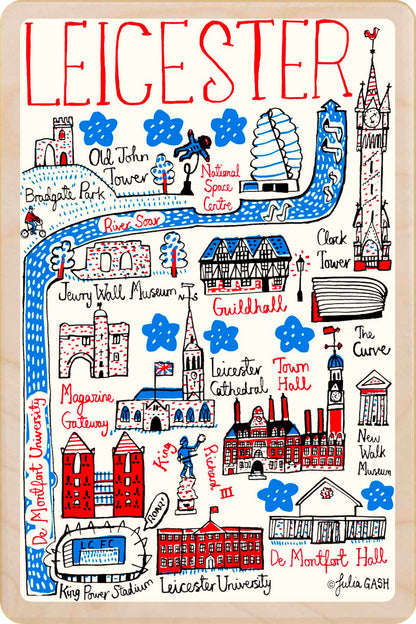 LEICESTER
Old John
Tower
National
Space
Centre
Bradgate Park
River Soar
Clock
Tower
Jewry Wall Museum
Guildhall
The
Curve
Magazine
Gateway
Leicester
Cathedral
Town
Hall
New
Walk
Museum
De Montfort University
King
Richard
III
LCFC
ROAR!
King Power Stadium
Leicester University
De Montfort Hall
© Julia GASH